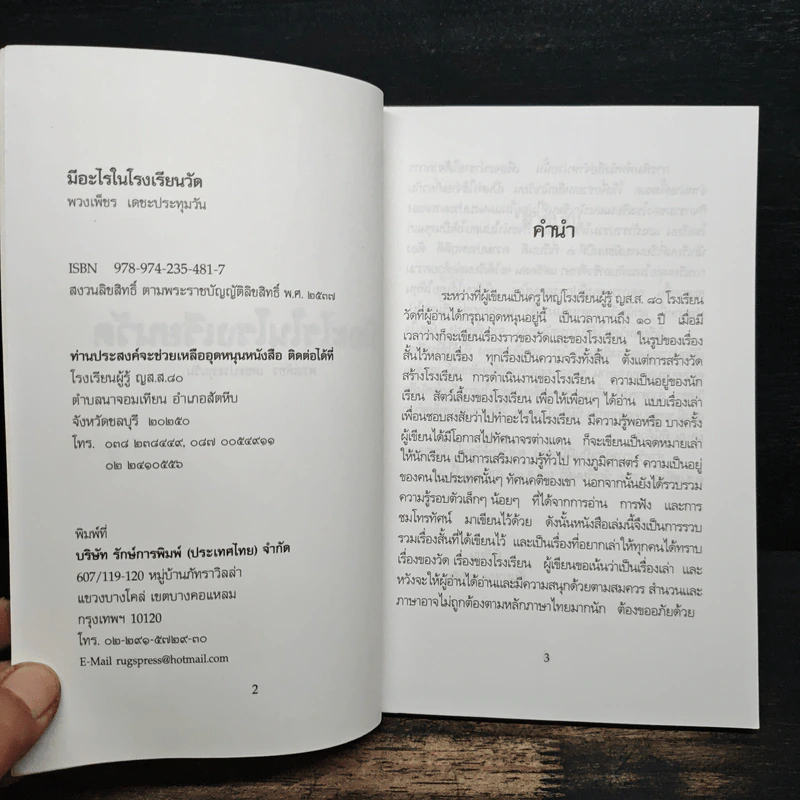 มีอะไรในโรงเรียนวัด
พวงเพ็ชร เดชะประทุมวัน
ISBN 978-974-235-481-7
สงวนลิขสิทธิ์ ตามพระราชบัญญัติลิขสิทธิ์ พ.ศ. ๒๕๓๗
ท่านประสงค์จะช่วยเหลืออุดหนุนหนังสือ ติดต่อได้ที่
โรงเรียนผู้รู้ ญส.ส.๘๐
ตำบลนาจอมเทียน อำเภอสัตหีบ
จังหวัดชลบุรี ๒๐๒๕๐
โทร. ๐๓๘ ๒๓๘๔๔๙, ๐๘๗ ๐๐๕๔๙๑๑
๐๒ ๒๔๑๐๕๕๖
พิมพ์ที่
บริษัท รักษ์การพิมพ์ (ประเทศไทย) จำกัด
607/119-120 หมู่บ้านภัทราวิลล่า
แขวงบางโคล่ เขตบางคอแหลม
กรุงเทพฯ 10120
โทร. ๐๒-๒๙๑-๕๗๒๙-๓๐
E-Mail rugspress@hotmail.com
2
คำนำ
ระหว่างที่ผู้เขียนเป็นครูใหญ่โรงเรียนผู้รู้ ญส.ส. ๘๐ โรงเรียน
วัดที่ผู้อ่านได้กรุณาอุดหนุนอยู่นี้ เป็นเวลานานถึง ๑๐ ปี เมื่อมี
เวลาว่างก็จะเขียนเรื่องราวของวัดและของโรงเรียน ในรูปของเรื่อง
สั้นไว้หลายเรื่อง ทุกเรื่องเป็นความจริงทั้งสิ้น ตั้งแต่การสร้างวัด
สร้างโรงเรียน การดำเนินงานของโรงเรียน ความเป็นอยู่ของนัก
เรียน สัตว์เลี้ยงของโรงเรียน เพื่อให้เพื่อนๆ ได้อ่าน แบบเรื่องเล่า
เพื่อนชอบสงสัยว่าไปทำอะไรในโรงเรียน มีความรู้พอหรือ บางครั้ง
ผู้เขียนได้มีโอกาสไปทัศนาจรต่างแดน ก็จะเขียนเป็นจดหมายเล่า
ให้นักเรียน เป็นการเสริมความรู้ทั่วไป ทางภูมิศาสตร์ ความเป็นอยู่
ของคนในประเทศนั้นๆ ทัศนคติของเขา นอกจากนั้นยังได้รวบรวม
ความรู้รอบตัวเล็กๆ น้อยๆ ที่ได้จากการอ่าน การฟัง และการ
ชมโทรทัศน์ มาเขียนไว้ด้วย ดังนั้นหนังสือเล่มนี้จึงเป็นการรวบ
รวมเรื่องสั้นที่ได้เขียนไว้ และเป็นเรื่องที่อยากเล่าให้ทุกคนได้ทราบ
เรื่องของวัด เรื่องของโรงเรียน ผู้เขียนขอเน้นว่าเป็นเรื่องเล่า และ
หวังจะให้ผู้อ่านได้อ่านและมีความสนุกด้วยตามสมควร สำนวนและ
ภาษาอาจไม่ถูกต้องตามหลักภาษาไทยมากนัก ต้องขออภัยด้วย
3